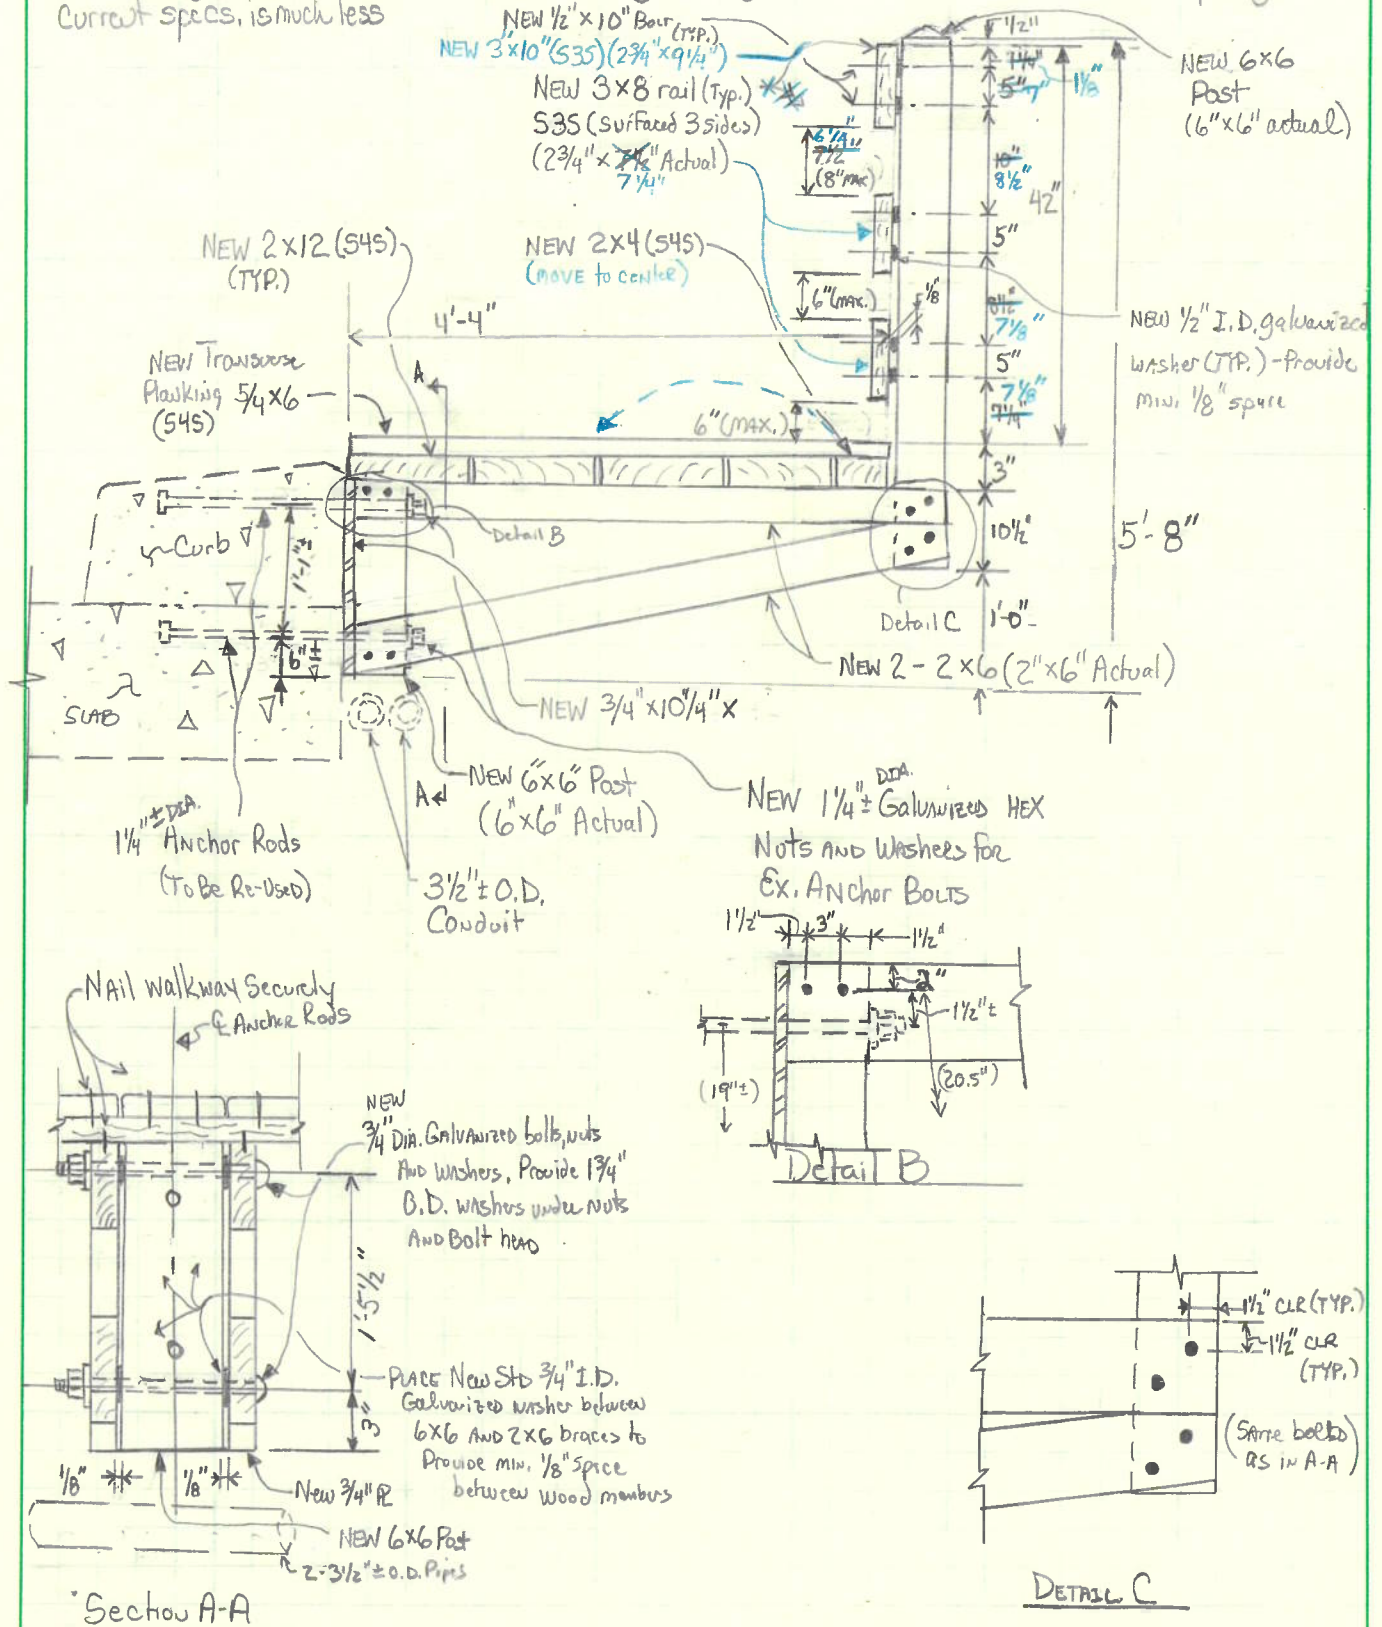 Current specs, is much less
NEW 1/2" x 10" Bolt (TYP.)
NEW 3"x10" (S3S) (2 3/4" x 9 1/4")
NEW 3x8 rail (Typ.)
S3S (surfaced 3 sides)
(2 3/4" x 7 1/2" Actual)
7 1/4"
6 1/4"
7 1/2"
(8" MAX)
1 1/2"
1 1/4"
1 1/8"
5"
7"
10"
8 1/2"
42"
5"
8 1/2"
7 1/8"
5"
7 1/8"
7 1/4"
3"
10 1/2"
1'-0"
5'-8"
NEW 6x6
Post
(6"x6" actual)
NEW 2x12 (S4S)
(TYP.)
NEW 2x4 (S4S)
(move to center)
6" (MAX.)
1/8
4'-4"
NEW 1/2" I.D. galvanized
washer (TYP.) - Provide
min. 1/8" space
NEW Transverse
Planking 5/4 x 6
(S4S)
A
6" (MAX.)
Detail B
Curb
1'-1"±
6"±
SLAB
Detail C
NEW 2 - 2x6 (2"x6" Actual)
NEW 3/4" x 10 1/4" x
A
NEW 6"x6" Post
(6"x6" Actual)
1 1/4"± DIA.
Anchor Rods
(To Be Re-Used)
3 1/2"± O.D.
Conduit
NEW 1 1/4"± DIA. Galvanized HEX
Nuts AND Washers for
Ex. Anchor Bolts
1 1/2"
3"
1 1/2"
2"
1 1/2"±
(19"±)
(20.5")
Detail B
Nail Walkway Securely
℄ Anchor Rods
NEW
3/4" Dia. Galvanized bolts, nuts
And washers, Provide 1 3/4"
O.D. washers under Nuts
And Bolt head
1'-5 1/2"
3"
PLACE New Std 3/4" I.D.
Galvanized washer between
6x6 AND 2x6 braces to
Provide min. 1/8" space
between wood members
1/8"
1/8"
New 3/4" PL
NEW 6x6 Post
2-3 1/2"± O.D. Pipes
Section A-A
1 1/2" CLR (TYP.)
1 1/2" CLR
(TYP.)
(Same bolted
as in A-A)
DETAIL C